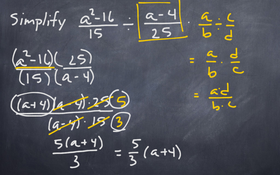 Simplify (a²-16)/15 ÷ (a-4)/25 · a/b ÷ c/d
(a²-16)/(15) · 25/(a-4) = a/b · d/c
(a+4)(a-4)·25 5 = a·d/b·c
(a-4)·15 3
5(a+4)/3 = 5/3 (a+4)